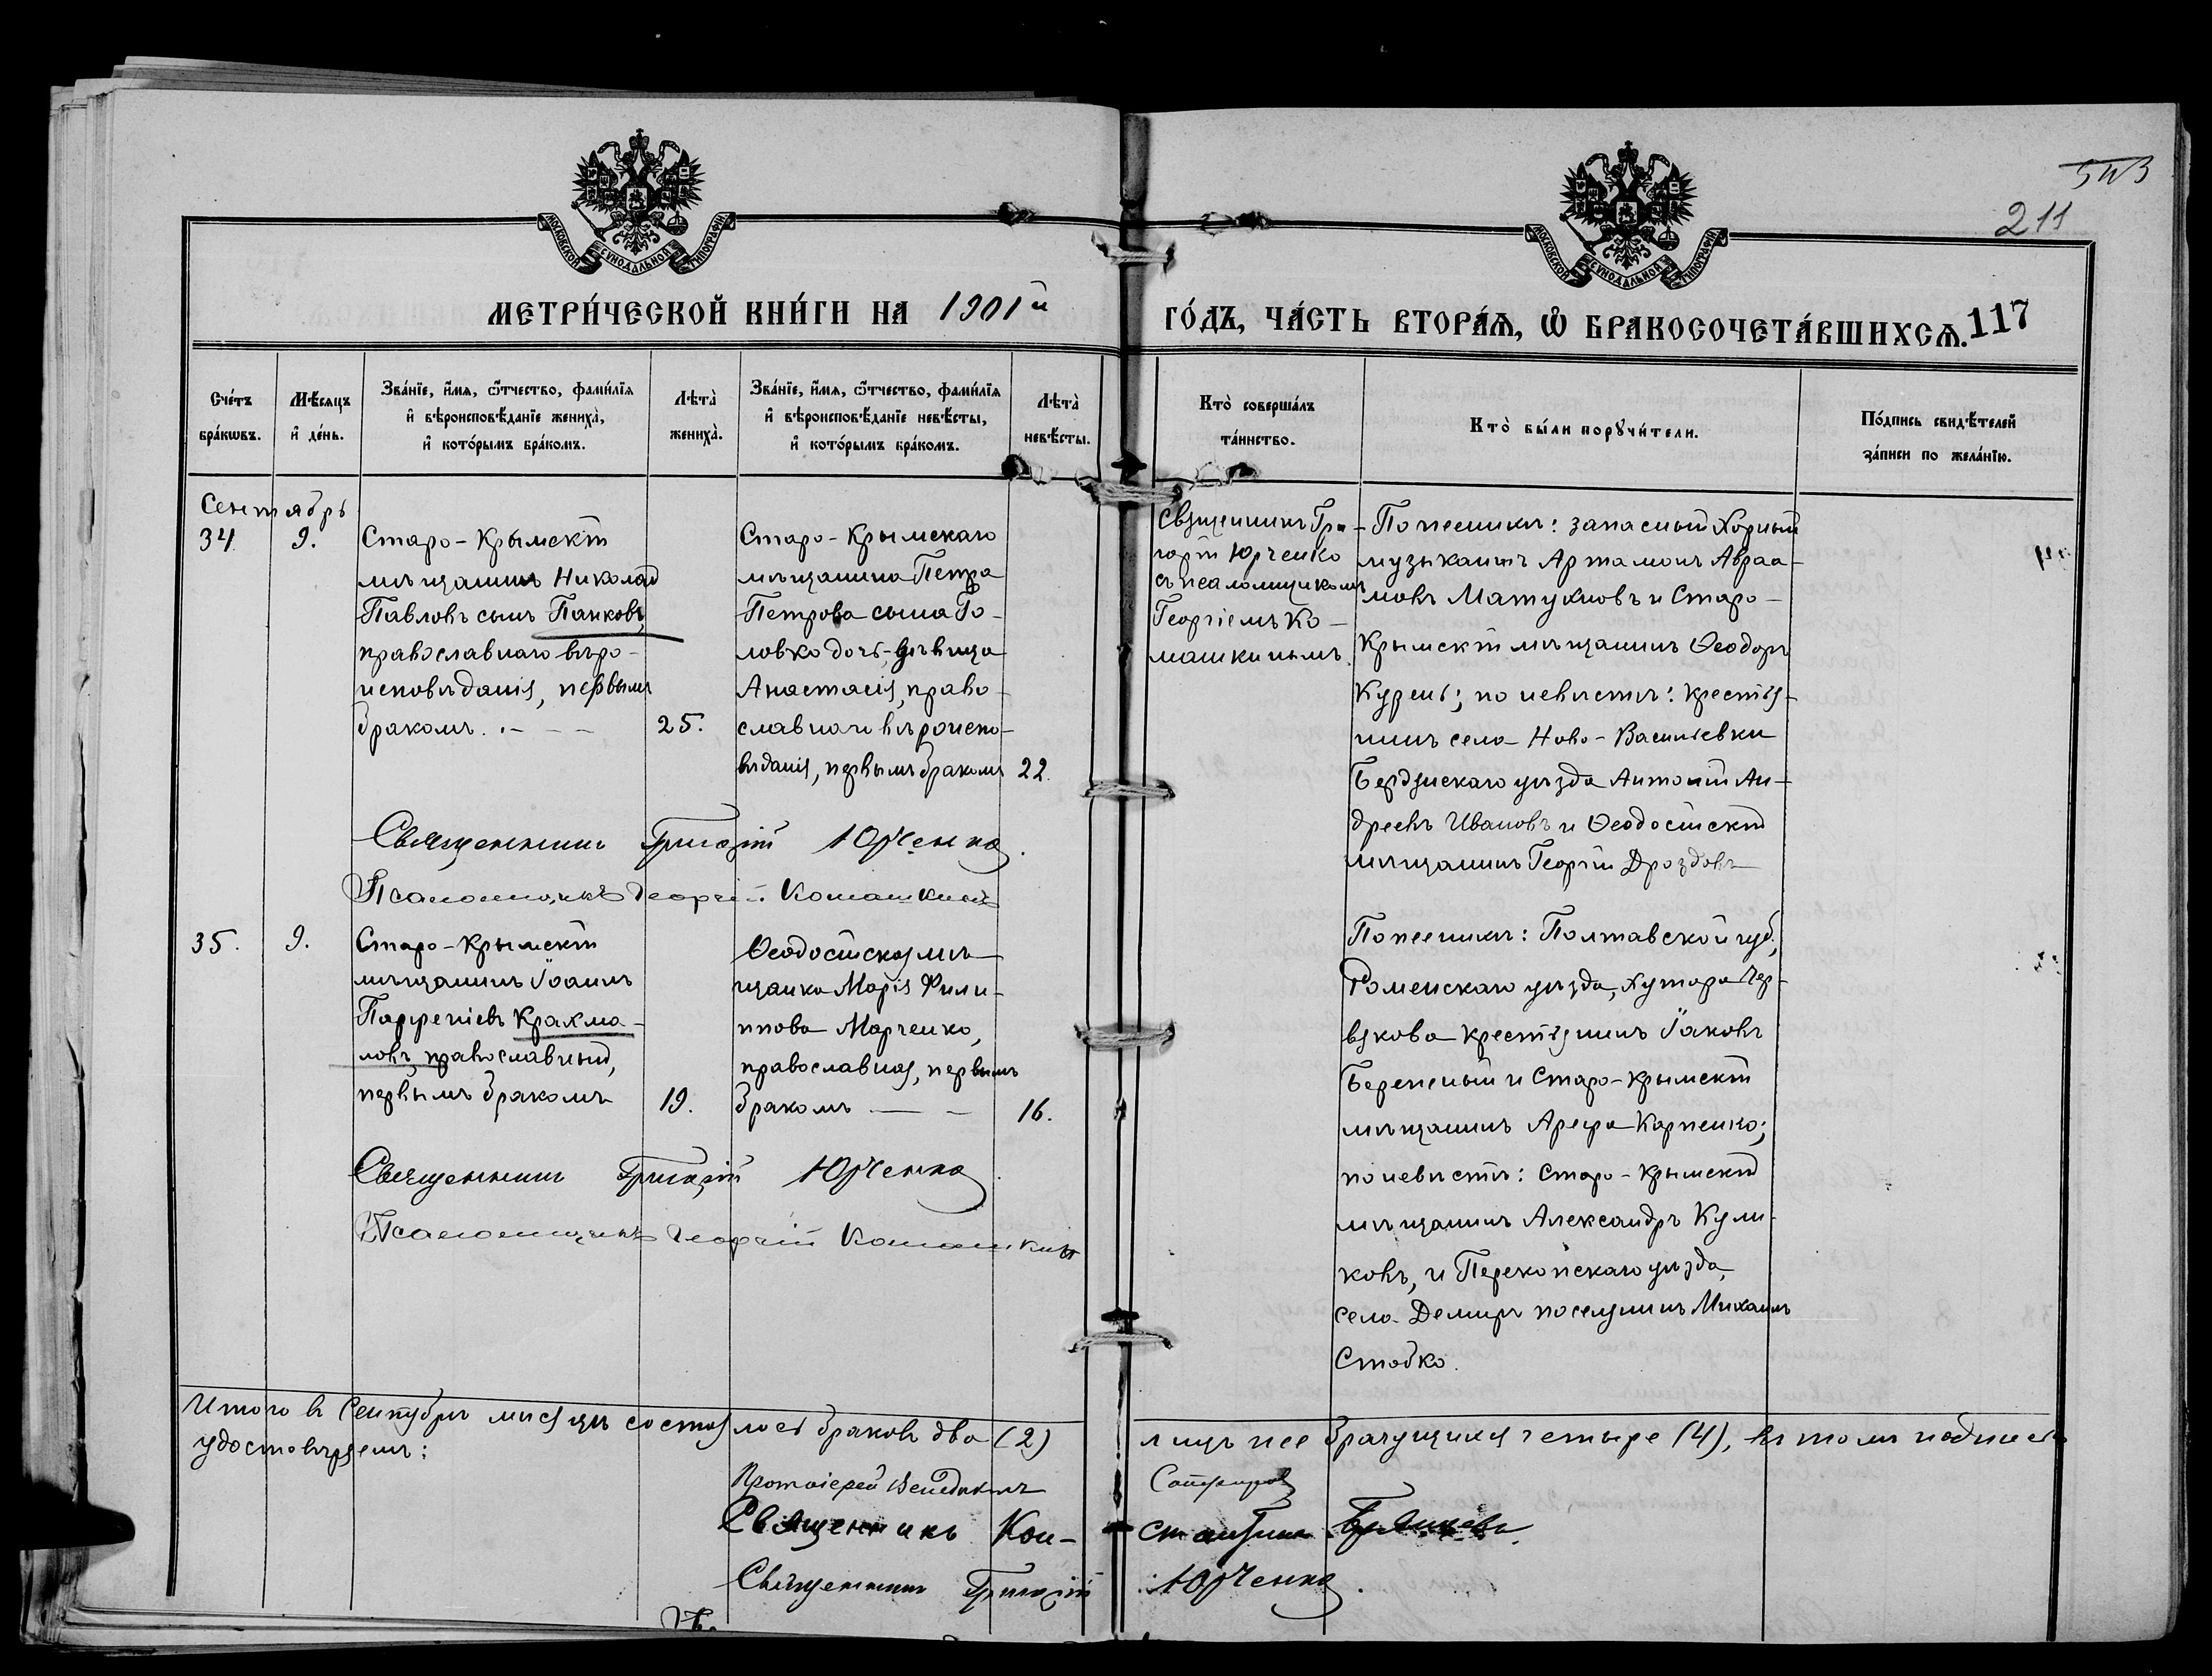 5113
211
МОСКОВСКОЙ СѴНОДАЛЬНОЙ ТИПОГРАФІИ
МОСКОВСКОЙ СѴНОДАЛЬНОЙ ТИПОГРАФІИ
МЕТРИ́ЧЕСКОЙ КНИ́ГИ НА 1901й
ГО́ДЪ, ЧА́СТЬ ВТОРА́Ѧ, Ѽ БРАКОСОЧЕТА́ВШИХСѦ.
117
Сче́тъ бра́кѡвъ.
Мѣ́сяцъ и҆ де́нь.
Зва́нїе, и҆́мя, ѻ҆́тчество, фами́лїя и҆ вѣроисповѣ́данїе жениха̀, и҆ кото́рымъ бра́комъ.
Лѣта̀ жениха̀.
Зва́нїе, и҆́мя, ѻ҆́тчество, фами́лїя и҆ вѣроисповѣ́данїе невѣ́сты, и҆ кото́рымъ бра́комъ.
Лѣта̀ невѣ́сты.
Кто̀ соверша́лъ та́инство.
Кто̀ бы́ли порꙋчи́тели.
По́дпись свидѣ́телей за́писи по жела́нїю.
Сентябрь
34
9.
Старо-Крымскій
мѣщанинъ Николай
Павловъ сынъ Панковъ,
православнаго вѣро-
исповѣданія, первымъ
бракомъ. - - -
25.
Старо-Крымскаго
мѣщанина Петра
Петрова сына Го-
ловко дочь-дѣвица
Анастасія, право-
славнаго вѣроиспо-
вѣданія, первымъ бракомъ
22.
Священникъ Гри-
горій Юрченко
съ псаломщикомъ
Георгіемъ Ко-
машкинымъ.
По женихѣ: запасный Хорный
музыкантъ Артамонъ Авраа-
мовъ Матухновъ и Старо-
Крымскій мѣщанинъ Ѳеодоръ
Курень; по невѣстѣ: крестья-
нинъ села Ново-Василіевки
Бердянскаго уѣзда Антоній Ан-
дреевъ Ивановъ и Ѳеодосійскій
мѣщанинъ Георгій Дроздовъ
Священникъ Григорій Юрченко.
Псаломщикъ Георгій Комашкинъ
35.
9.
Старо-Крымскій
мѣщанинъ Іоаннъ
Парѳеніевъ Крахма-
ловъ, православный,
первымъ бракомъ
19.
Ѳеодосійская мѣ-
щанка Марія Фили-
ппова Марченко,
православная, первымъ
бракомъ — -
16.
По женихѣ: Полтавской губ.,
Роменскаго уѣзда, хутора Чер-
вякова крестьянинъ Іаковъ
Бережный и Старо-Крымскій
мѣщанинъ Арефа Карпенко;
по невѣстѣ: Старо-Крымскій
мѣщанинъ Александръ Кули-
ковъ, и Перекопскаго уѣзда,
села Демиръ поселянинъ Михаилъ
Стобко.
Священникъ Григорій Юрченко
Псаломщикъ Георгій Комашкинъ
Итого въ Сентябрѣ мѣсяцѣ состоялось браковъ два (2)
лицъ же брачущихся четыре (4), въ томъ подписью
удостовѣряемъ:
Протоіерей Венедиктъ
Священникъ Кон-
стантинъ
Священникъ Григорій Юрченко.